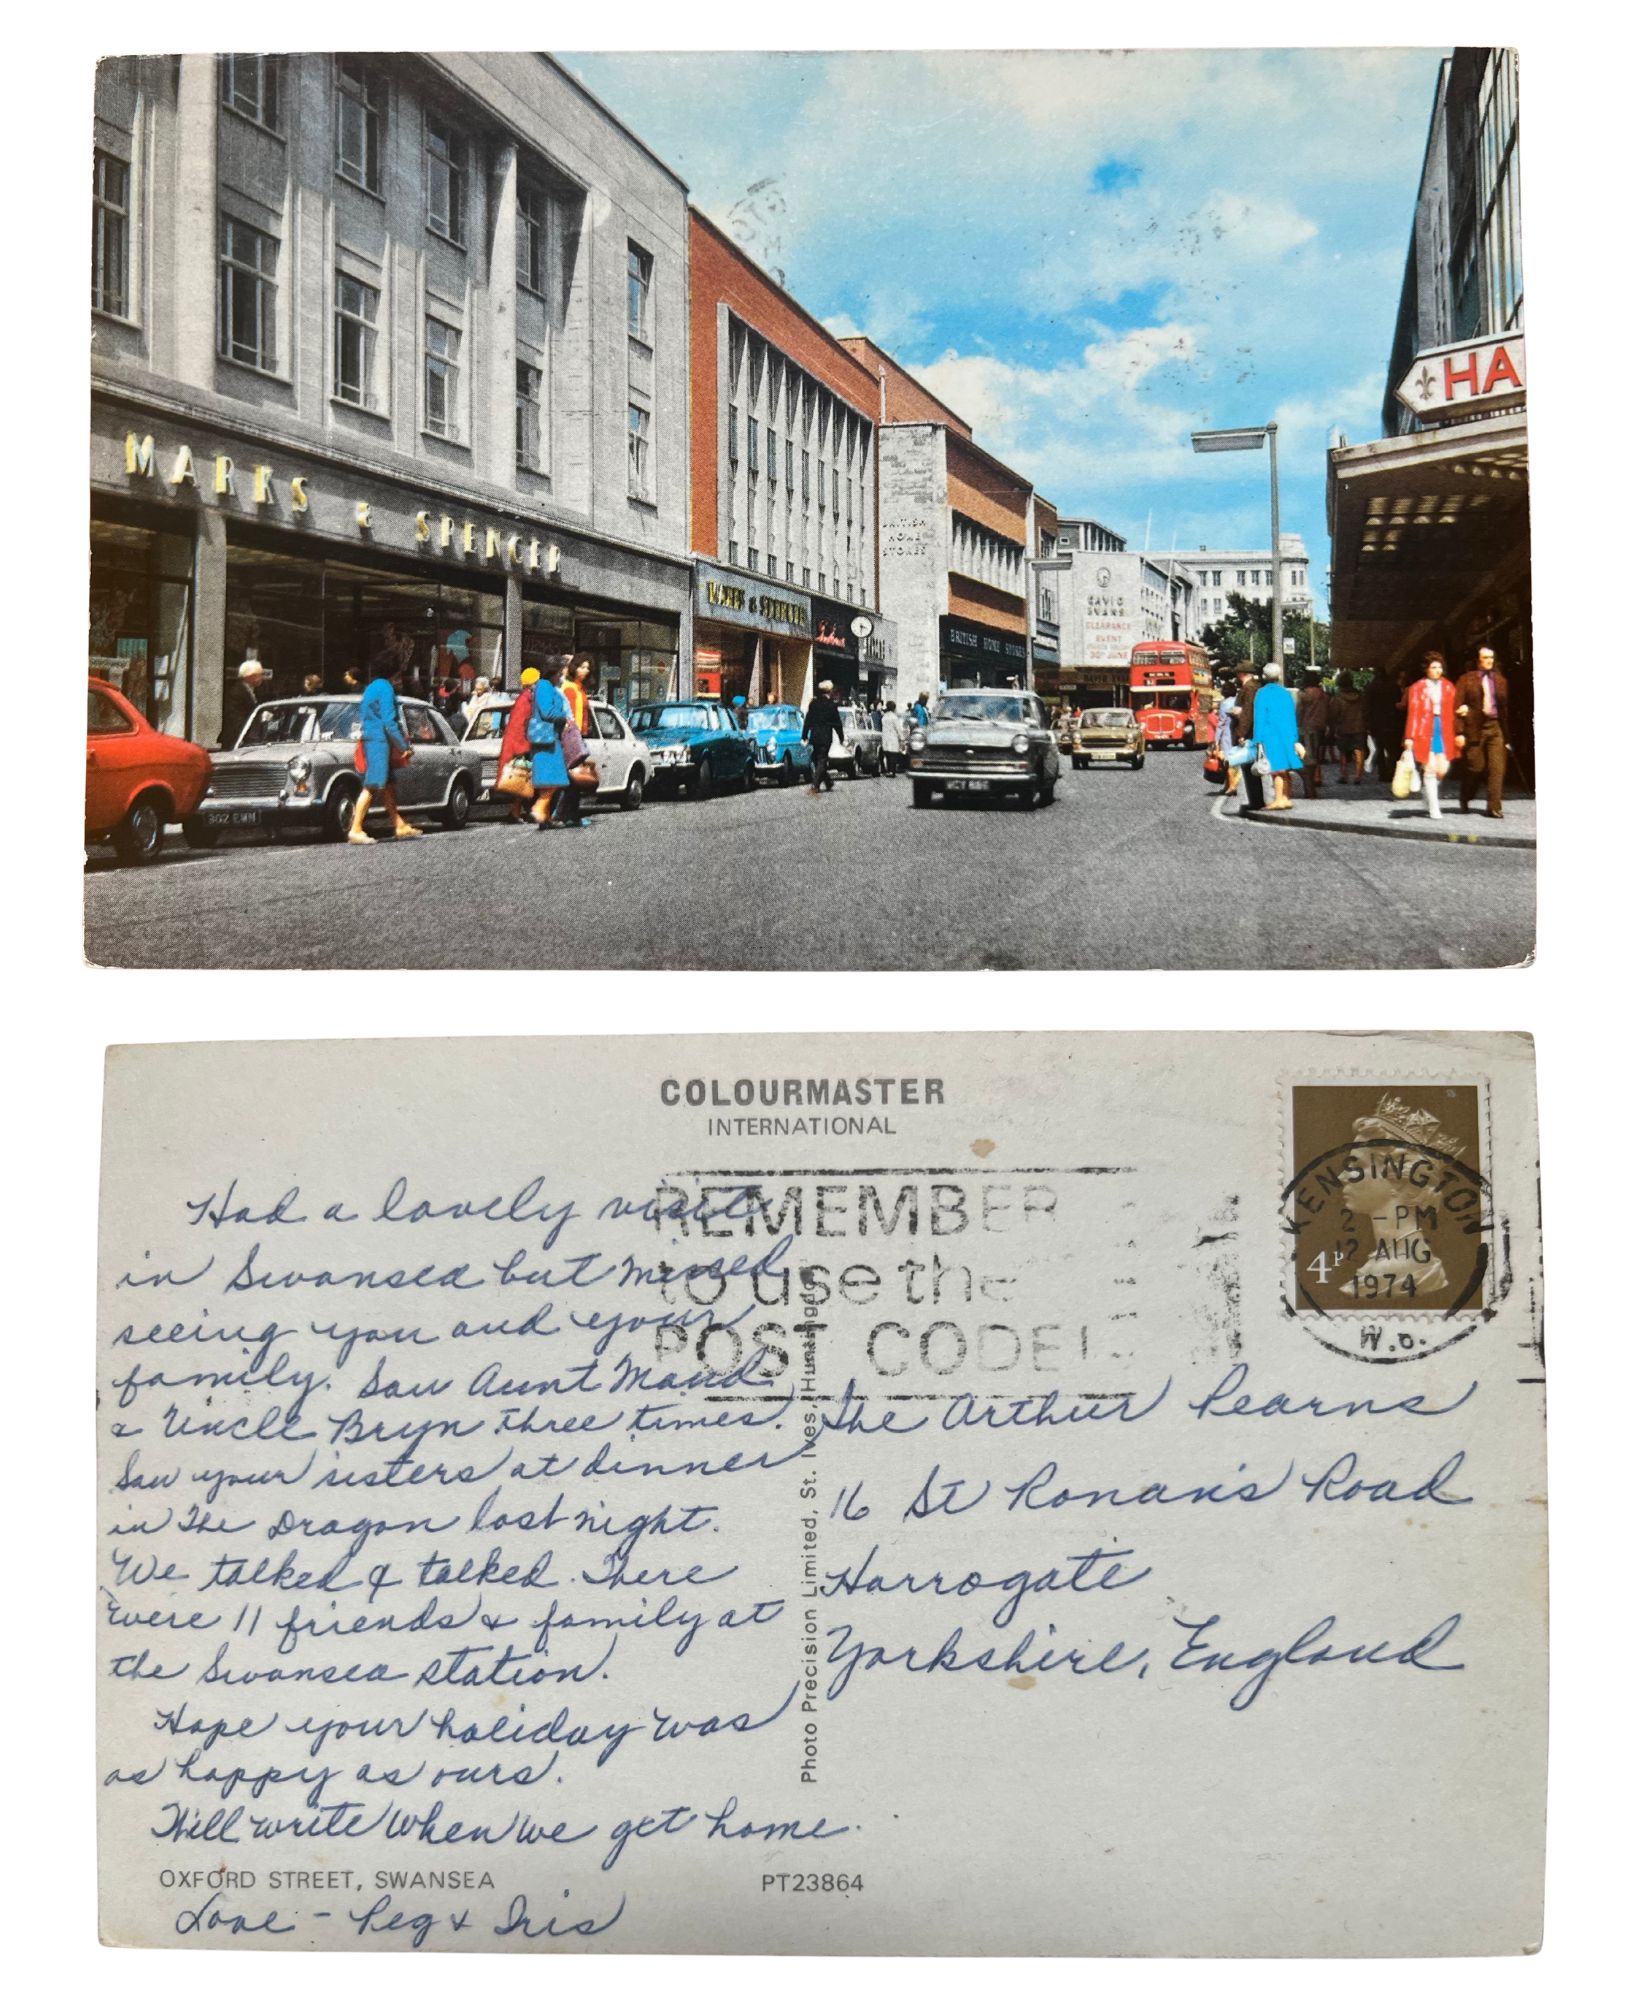 MARKS & SPENCER
MARKS & SPENCER
BRITISH
HOME
STORES
BRITISH HOME STORES
DAVID
EVANS
CLEARANCE
EVENT
30TH JUNE
HA
302 EWN
COLOURMASTER
INTERNATIONAL
REMEMBER
to use the
POST CODE!
KENSINGTON
2 - PM
12 AUG
1974
W.8.
4P
Had a lovely visit
in Swansea but missed
seeing you and your
family. Saw Aunt Maud
& Uncle Bryn three times.
Saw your sisters at dinner
in The Dragon last night.
We talked & talked. There
were 11 friends & family at
the Swansea station.
Hope your holiday was
as happy as ours.
Will write when we get home.
Love - Peg & Iris
The Arthur Pearns
16 St Ronan's Road
Harrogate
Yorkshire, England
Photo Precision Limited, St. Ives, Huntingdon
OXFORD STREET, SWANSEA
PT23864